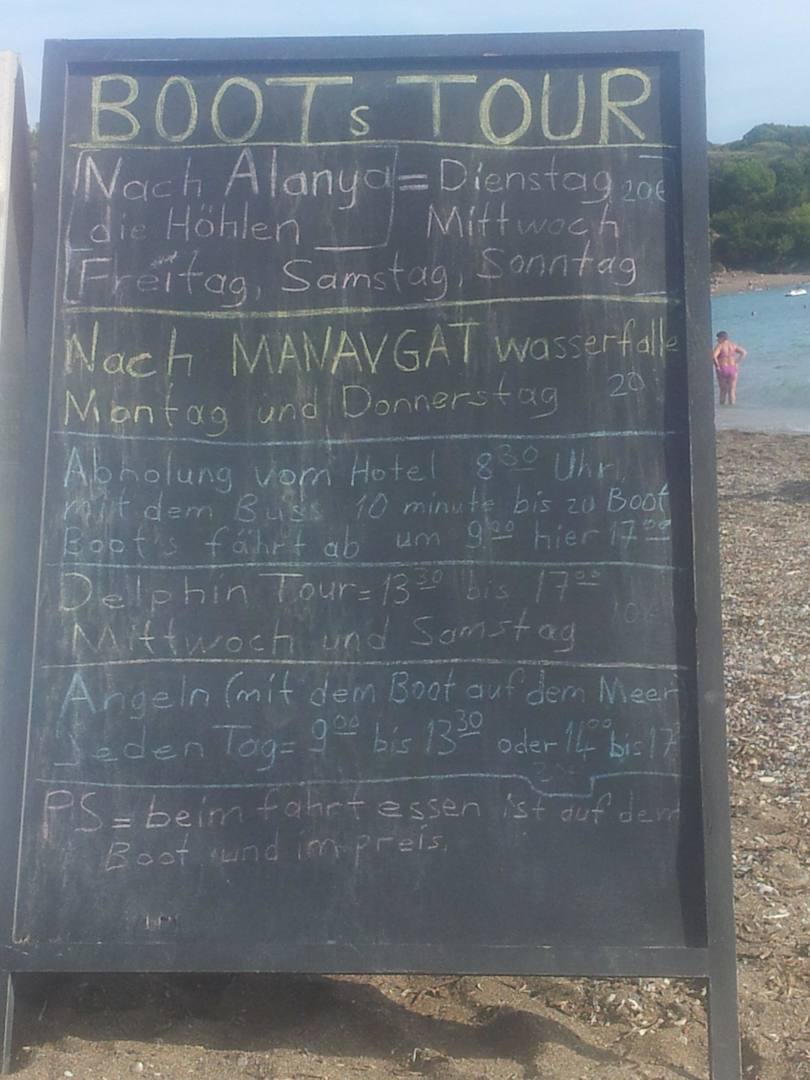 BOOTs TOUR
Nach Alanya = Dienstag 20€
die Höhlen Mittwoch
Freitag, Samstag, Sonntag
Nach MANAVGAT wasserfalle
Montag und Donnerstag 20
Abholung vom Hotel 8 30 Uhr
mit dem Buss 10 minute bis zu Boot
Boot's fährt ab um 9 00 hier 17 00
Delphin Tour = 13 30 bis 17 00
Mittwoch und Samstag
Angeln (mit dem Boot auf dem Meer
Jeden Tag = 9 00 bis 13 30 oder 14 00 bis 17
PS = beim fahrt essen ist auf dem
Boot und im preis.